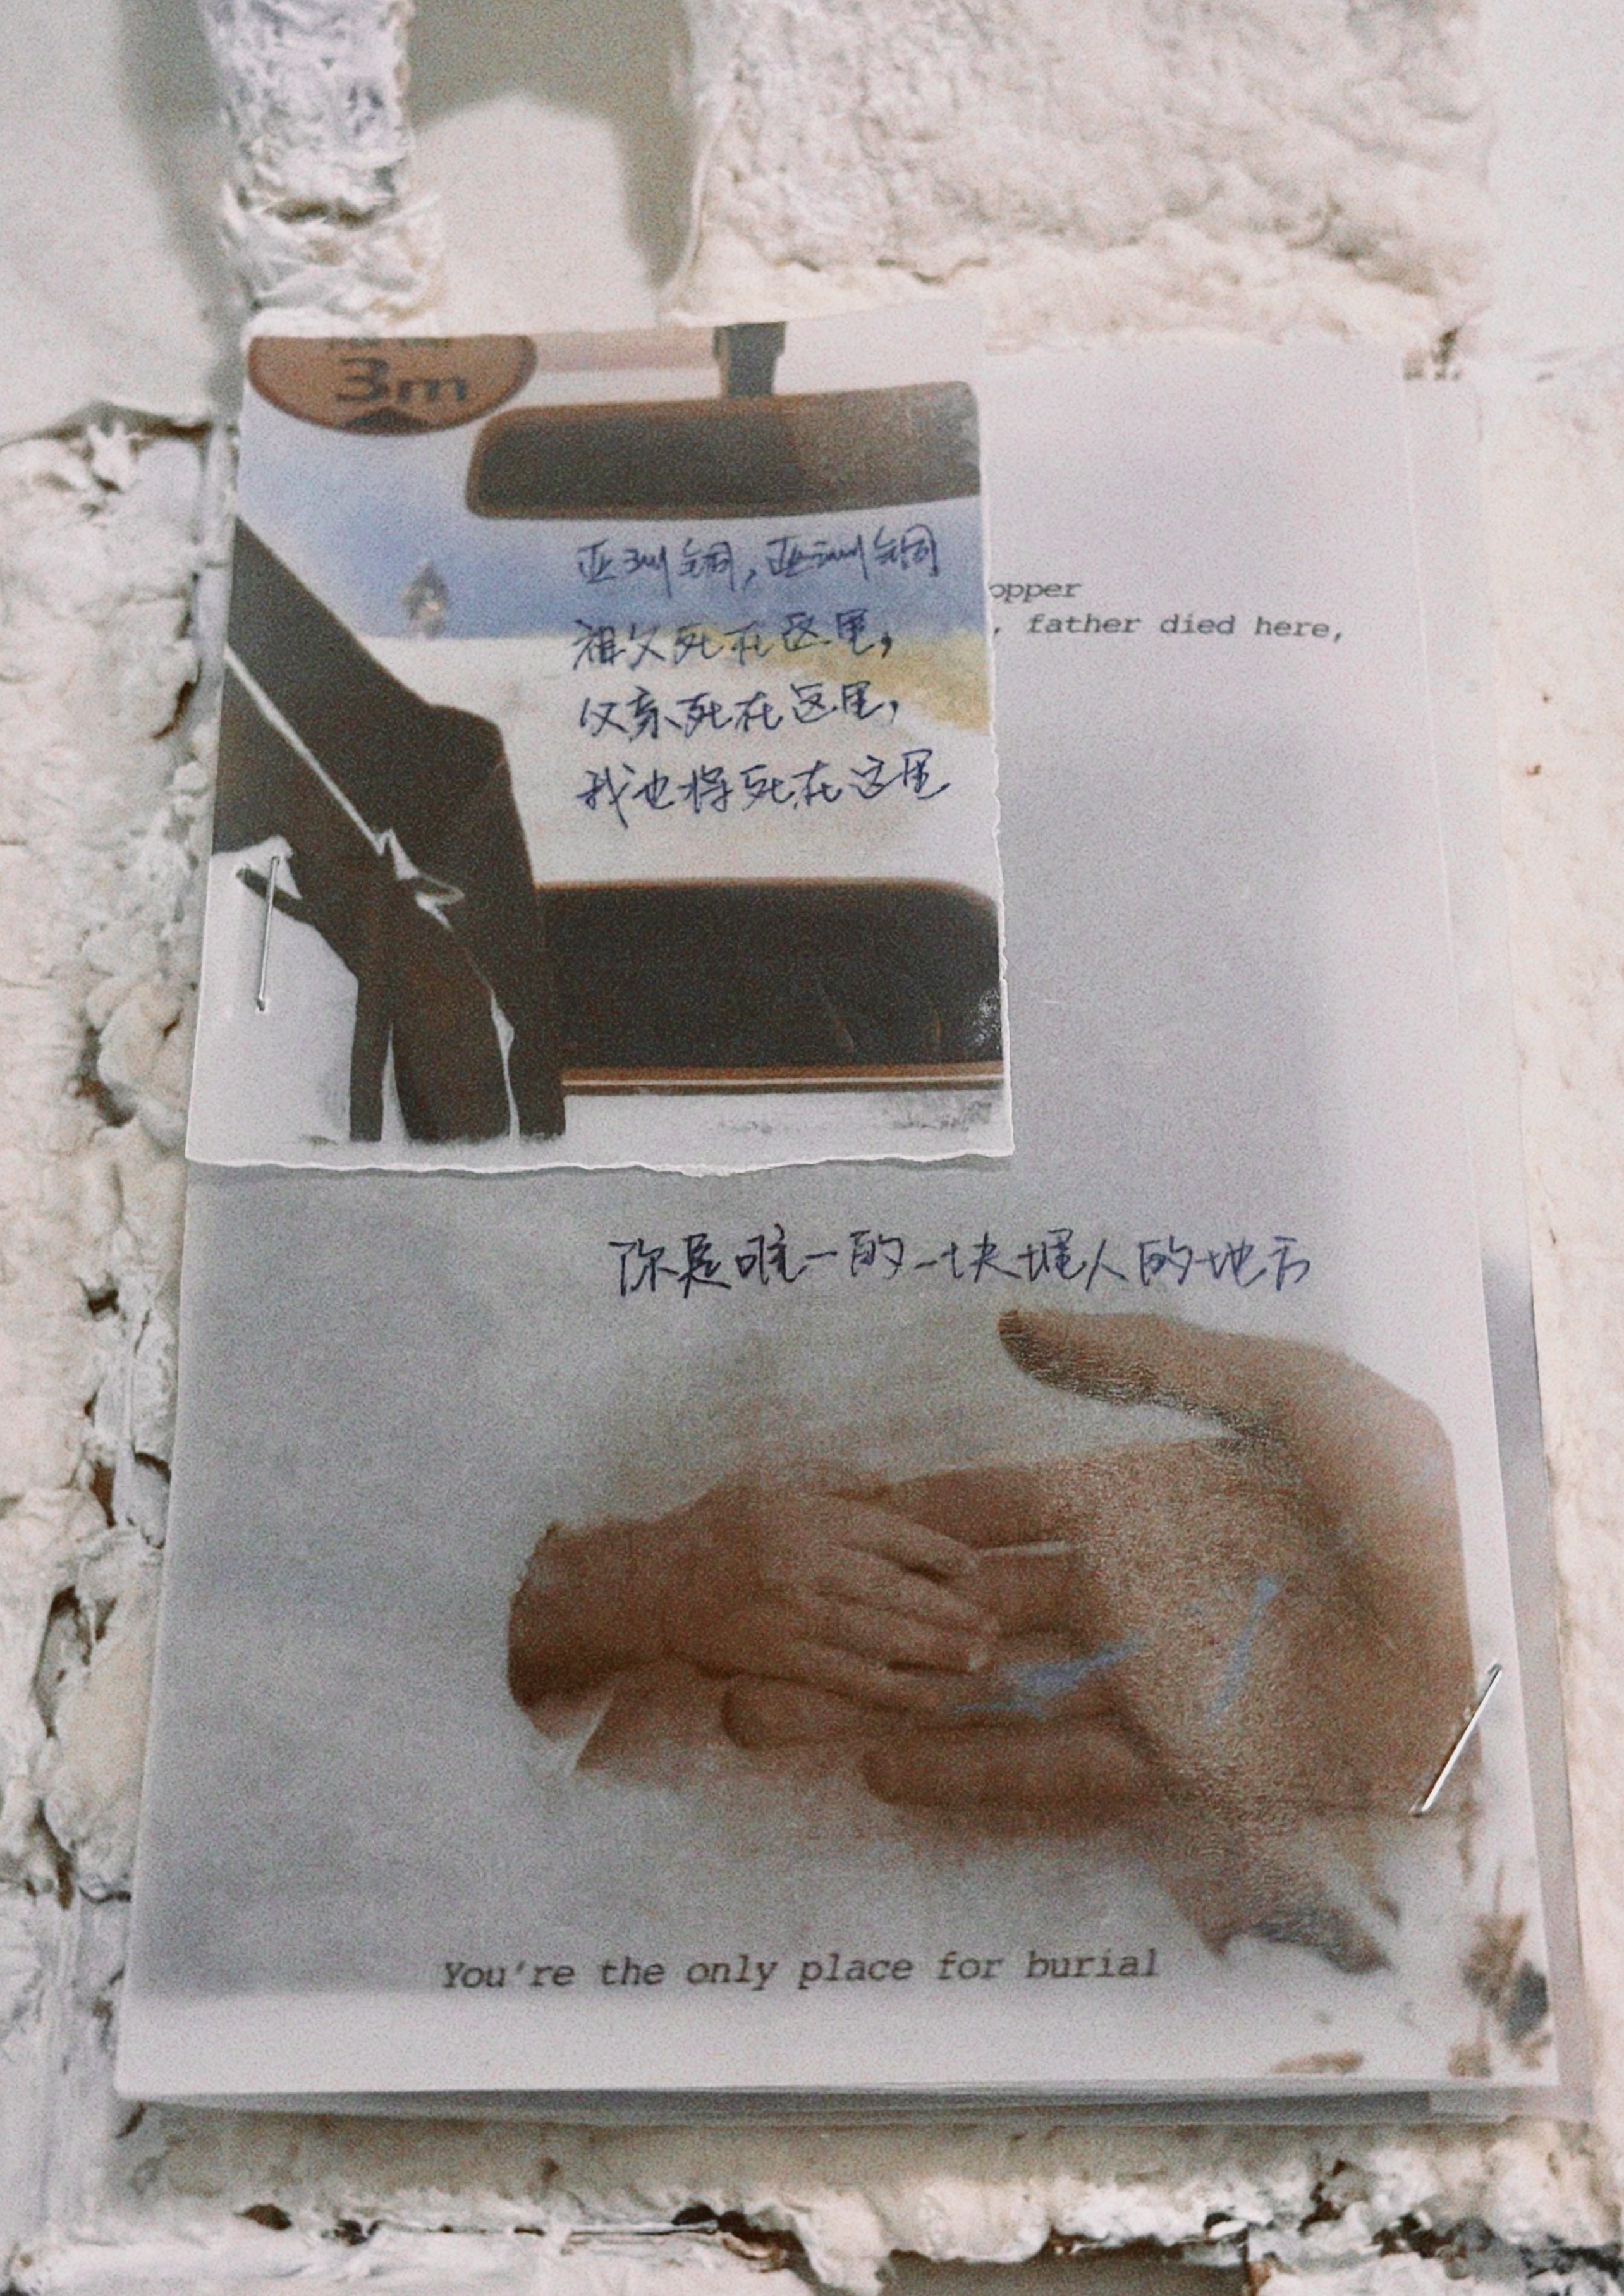 3m
亚洲铜,亚洲铜
祖父死在这里,
父亲死在这里,
我也将死在这里
opper
, father died here,
你是唯一的一块埋人的地方
You're the only place for burial